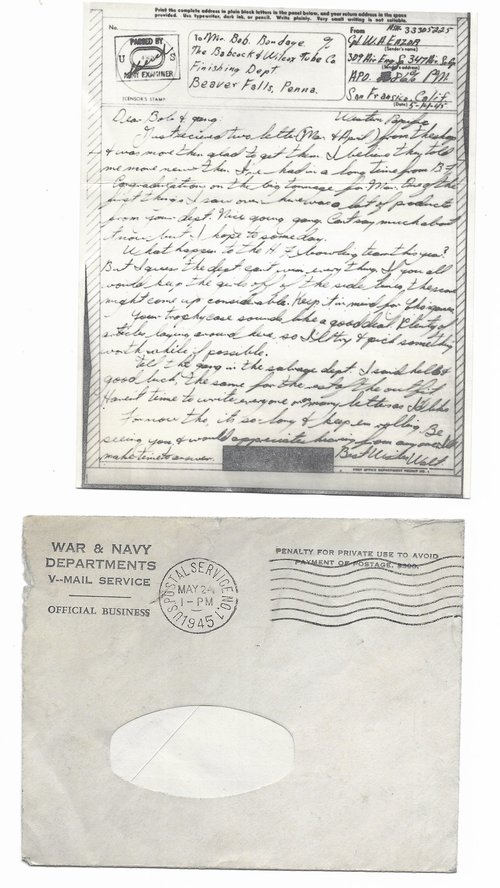 Print the complete address in plain block letters in the panel below, and your return address in the space
provided. Use typewriter, dark ink, or pencil. Write plainly. Very small writing is not suitable.
No.
PASSED BY
U S
ARMY EXAMINER
(CENSOR'S STAMP)
To Mr. Bob. Bondaye
The Babcock & Wilcox Tube Co
Finishing Dept.
Beaver Falls, Penna.
From
33305225
Cpl W.A.
(Sender's name)
309 Air Eng Sq 347 Air S. Gp
(Sender's address)
APO. % PM
San Fransico, Calif
(Date) 5-14-45
Dear Bob & gang
Western Pacific
Just recieved two letters (Mar. & April) from the shop
& was more than glad to get them. I believe they told
me more news than I've had in a long time from B.F.
Consideratulations on the big tonnage for Mar. One of the
first things I saw over here was a lot of products
from your dept. Nice going gang. Can't say much about
it now but I hope to some day.
What happen to the H.F. bowling team this year?
But I guess the dept can't win every thing. If you all
would keep the girls off of the side lines, the score
might come up considerable. Keep it in mind for this year.
Your trophy case sounds like a good deal. Plenty of
articles laying around here, so I'll try & pick something
worth while if possible.
Tell the gang in the salvage dept. I said hello &
good luck, the same for the rest of the outfit.
Haven't time to write everyone or many letters as I'd like
For now tho, it's so long & keep em rolling. Be
seeing you & would appreciate hearing from anyone who
make time to answer.
Best Wishes Walt
POST OFFICE DEPARTMENT PERMIT NO.
WAR & NAVY
DEPARTMENTS
V--MAIL SERVICE
OFFICIAL BUSINESS
U.S. POSTAL SERVICE NO. 1
MAY 24
1 - PM
1945
PENALTY FOR PRIVATE USE TO AVOID
PAYMENT OF POSTAGE, $300.